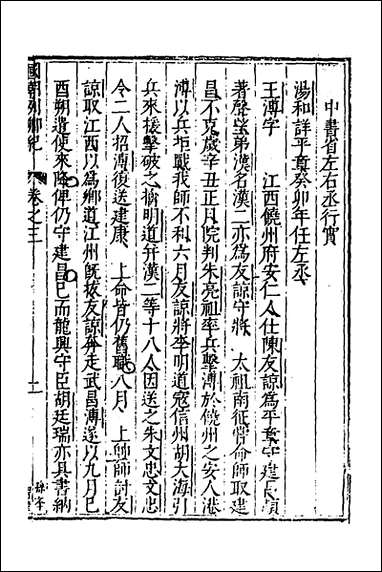 中書省左右丞行實
湯和詳平章癸卯年任左丞
王溥字　江西饒州府安仁人仕陳友諒為平章守建昌頗
著聲望弟漢名漢二亦為友諒守將　太祖南征嘗命師取建
昌不克歲辛丑正月院判朱亮祖率兵擊溥於饒州之安人港
溥以兵拒戰我師不利六月友諒將李明道寇信州胡大海引
兵來援擊破之擒明道并漢二等十八人因送之朱文忠文忠
令二人招溥復送建康　上命皆仍舊職八月　上帥師討友
諒取江西以為鄉道江州既拔友諒奔走武昌溥遂以九月己
酉朔遣使來降俾仍守建昌已而龍興守臣胡廷瑞亦具書納
國朝列卿紀　卷之三　十一